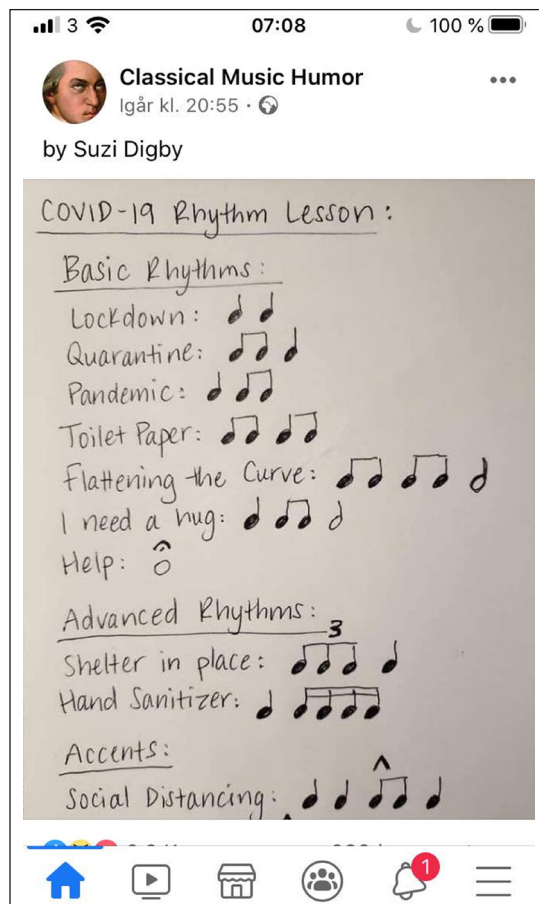 3 07:08 100 %
Classical Music Humor
Igår kl. 20:55 ·
by Suzi Digby
COVID-19 Rhythm Lesson:
Basic Rhythms:
Lockdown:
Quarantine:
Pandemic:
Toilet Paper:
Flattening the Curve:
I need a hug:
Help:
Advanced Rhythms:
3
Shelter in place:
Hand Sanitizer:
Accents:
Social Distancing:
1